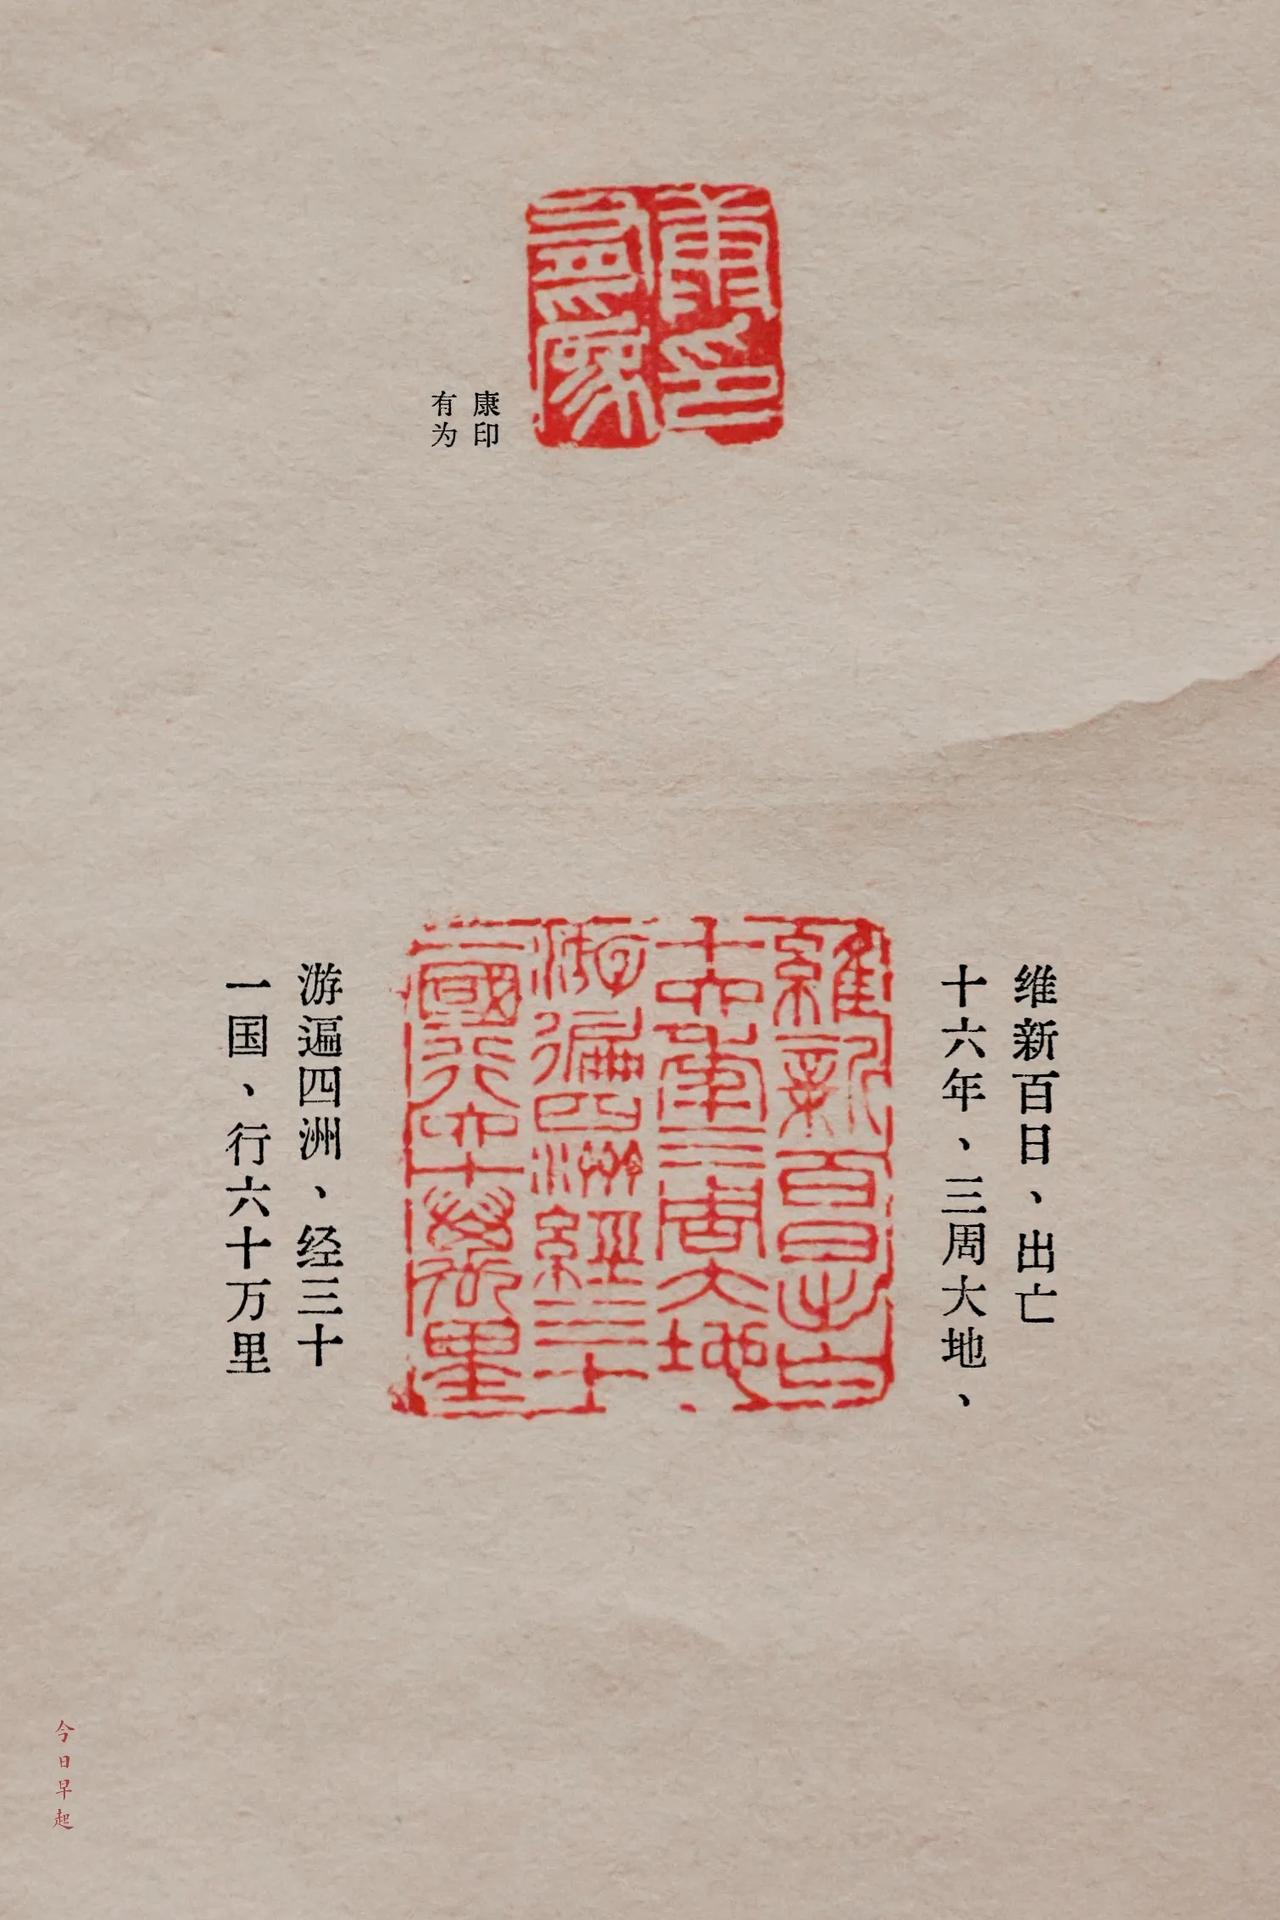 康印
有为
康印
有為
维新百日、出亡
十六年、三周大地、
游遍四洲、经三十
一国、行六十万里
維新百日出亡
十六年三周大地
游遍四洲經三十
一國行六十萬里
今日早起